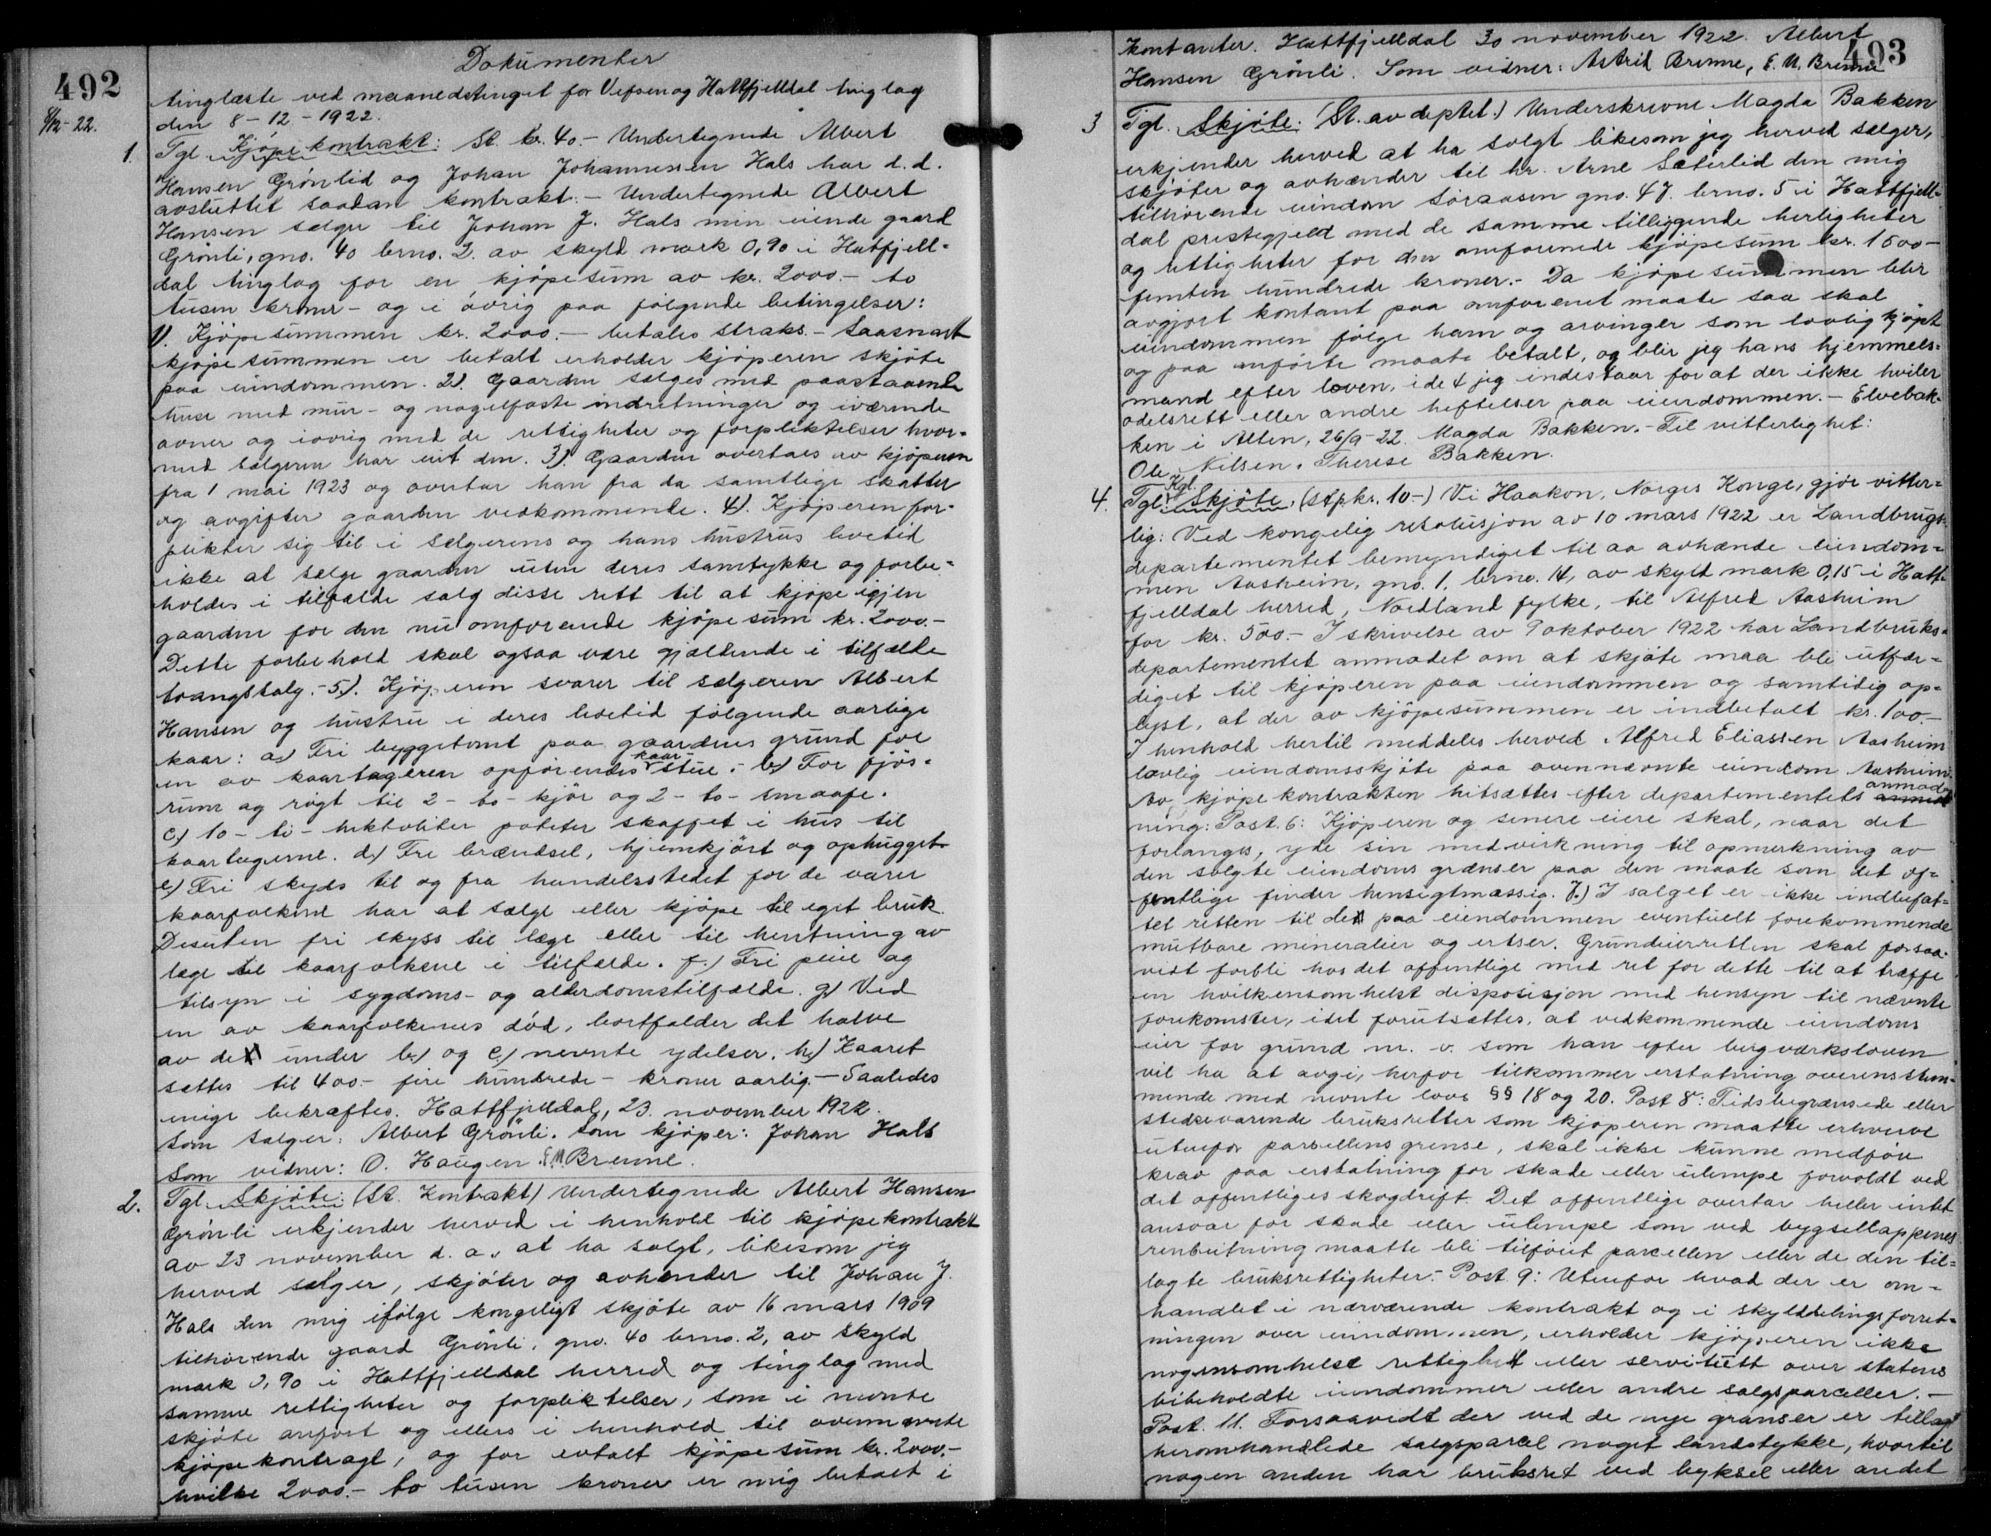 492
Dokumenter
tinglæste ved maanedstinget for Vefsen og Hattfjelldal tinglag
8/12-22.
den 8-12-1922.
1. Tgl. Kjøpekontrakt: St. kr. 40.- Undertegnede Albert
Hansen Grönlid og Johan Johannessen Hals har d.d.
avsluttet saadan kontrakt. - Undertegnede Albert
Hansen sælger til Johan J. Hals min eiende gaard
Grönli, gno. 40 brno. 2. av skyld mark 0,90 i Hatfjell-
dal tinglag for en kjöpesum av kr. 2000.- to
tusen kroner - og i övrig paa fölgende betingelser:
1). Kjöpesummen kr. 2000.- betales straks. - Saasnart
kjöpesummen er betalt erholder kjöperen skjöte
paa eiendommen. 2). Gaarden sælges med paastaaende
huse med mur- og nagelfaste indretninger og iværende
ovner og iövrig med de rettigheter og forpliktelser hvor-
med sælgeren har eiet den. 3). Gaarden overtaes av kjöperen
fra 1 mai 1923 og overtar han fra da samtlige skatter
og avgifter gaarden vedkommende. 4). Kjöperen for-
plikter sig til i sælgerens og hans hustrus levetid
ikke at sælge gaarden uten deres samtykke og forbe-
holdes i tilfælde salg disse rett til at kjöpe igjen
gaarden for den nu omforenede kjöpesum kr. 2000.-
Dette forbehold skal ogsaa være gjældende i tilfælde
tvangssalg. - 5). Kjöperen svarer til sælgeren Albert
Hansen og hustru i deres levetid fölgende aarlige
kaar: a) Fri byggetomt paa gaardens grund for
en av kaartageren opförendes kaarstue. - b) For fjös-
rum og rögt til 2 - to - kjör og 2 - to - smaafe.
c) 10 - ti - hektoliter poteter skaffet i hus til
kaartagerne. d) Fri brændsel, hjemkjört og ophugget
e) Fri skyds til og fra handelsstedet for de varer
kaarfolkene har at sælge eller kjöpe til eget bruk.
Desuten fri skyss til læge eller til hentning av
læge til kaarfolkene i tilfælde. f.) Fri pleie og
tilsyn i sygdoms- og alderdomstilfælde. g) Ved
en av kaarfolkenes död, bortfalder det halve
av de under b) og c) nevnte ydelser. h) Kaaret
sættes til 400.- fire hundrede - kroner aarlig. - Saaledes
enige bekræftes. Hattfjelldal, 23. november 1922.
Som sælger: Albert Grönli. Som kjöper: Johan Hals
Som vidner: O. Haugen. E. M. Brenne.
2. Tgl. Skjöte: (St. Kontrakt) Undertegnede Albert Hansen
Grönli erkjender herved i henhold til kjöpekontrakt
av 23 november d. a. at ha solgt, likesom jeg
herved sælger, skjöter og avhender til Johan J.
Hals den mig ifölge kongeligt skjöte av 16 mars 1909
tilhörende gaard Grönli, gno. 40 brno. 2, av skyld
mark 0,90 i Hattfjelldal herred og tinglag med
samme rettigheter og forpliktelser, som i nevnte
skjöte anfört og ellers i henhold til ovennevnte
kjöpekontragt, og for avtalt kjöpesum kr. 2000.-
hvilke 2000.- to tusen kroner er mig betalt i
493
kontanter. Hattfjelldal 30 november 1922. Albert
Hansen Grönli. Som vidner: Astrid Brenne, E. M. Brenne
3 Tgl. Skjöte. (St. av deptet.) Underskrevne Magda Bakken
erkjender herved at ha solgt likesom jeg herved sælger,
skjöter og avhænder til hr. Arne Sæterlid den mig
tilhörende eiendom Söraasen gno. 47. brno. 5 i Hattfjell-
dal prestegjeld med de samme tilliggende herligheter
og rettigheter for den omforenede kjöpesum kr. 1500-
femten hundrede kroner. - Da kjöpesummen blir
avgjort kontant paa omforenet maate saa skal
eiendommen fölge ham og arvinger som lovlig kjöpt
og paa anförte maate betalt, og blir jeg hans hjemmels-
mand efter loven, idet jeg indestaar for at der ikke hviler
odelsrett eller andre heftelser paa eiendommen. - Elvebak-
ken i Alten, 26/9-22. Magda Bakken. - Til vitterlighet:
Ole Nilsen. Therese Bakken.
4. Tgl. Kgl. Skjöte. (Stp. kr. 10-) Vi Haakon, Norges Konge, gjör vitter-
lig: Ved kongelig resolusjon av 10 mars 1922 er Landbrugs-
departementet bemyndiget til aa avhænde eiendom-
men Aasheim, gno. 1, brno. 14, av skyld mark 0,15 i Hatt-
fjelldal herred, Nordland fylke, til Alfred Aasheim
for kr. 500.- I skrivelse av 9 oktober 1922 har Landbruks-
departementet anmodet om at skjöte maa bli utfær-
diget til kjöperen paa eiendommen og samtidig op-
lyst, at der av kjöpesummen er indbetalt kr. 100.-
I henhold hertil meddeles herved Alfred Eliassen Aasheim
lovlig eiendomsskjöte paa ovennævnte eiendom Aasheim.
Av kjöpekontrakten hitsættes efter departementets anmod-
ning: Post. 6: Kjöperen og senere eiere skal, naar det
forlanges, yde sin medvirkning til opmerkning av
den solgte eiendoms grænser paa den maate som det of-
fentlige finder hensigtmæssig. 7.) I salget er ikke indbefat-
tet retten til de paa eiendommen eventuelt forekommende
mutbare mineralier og ertser. Grundeierretten skal forsaa-
vidt forbli hos det offentlige med ret for dette til at træffe
en hvilkensomhelst disposisjon med hensyn til nævnte
forekomster, idet forutsættes, at vedkommende eiendoms
eier for grund m. v. som han efter bergverksloven
vil ha at avgi, herfor tilkommer erstatning overensstem-
mende med nevnte lovs §§ 18 og 20. Post 8: Tidsbegrænsede eller
stedsevarende bruksretter som kjöperen maatte erhverve
utenfor parsellens grense, skal ikke kunne medföre
krav paa erstatning for skade eller ulempe forvoldt ved
det offentliges skogdrift. Det offentlige overtar heller intet
ansvar for skade eller ulempe som ved bygsellappenes
renbeitning maatte bli tilföiet parcellen eller de den til-
lagte bruksrettigheter. - Post 9: Utenfor hvad der er om-
handlet i nærværende kontrakt og i skylddelingsforret-
ningen over eiendommen, erholder kjöperen ikke
nogensomhelst rettighet eller servitutt over statens
bibeholdte eiendommer eller andre salgsparceller. -
Post. 11. Forsaavidt der ved de nye grænser er tillagt
heromhandlede salgsparcel noget landstykke, hvortil
nogen anden har bruksret ved byksel eller andet